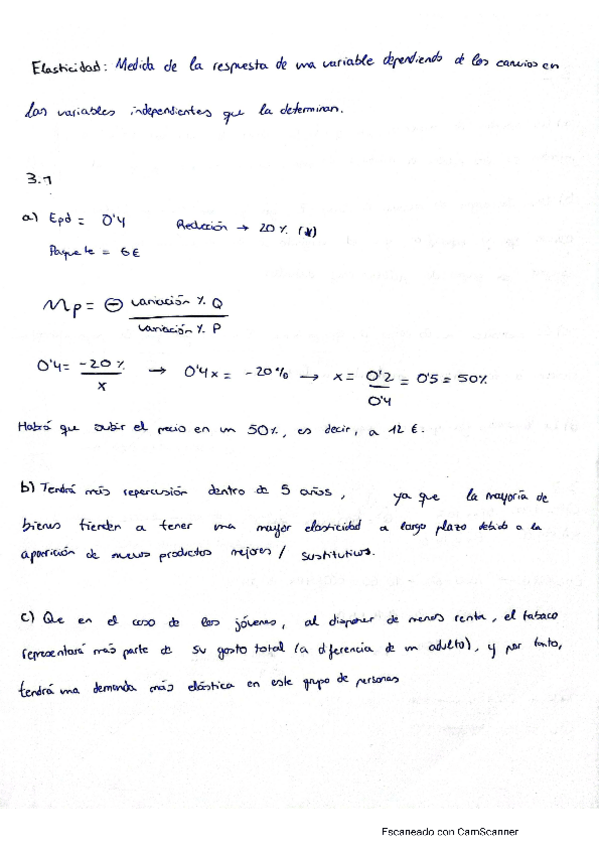 Elasticidad: Medida de la respuesta de una variable dependiendo de los canvios en
las variables independientes que la determinan.
3.1
a) Epd = 0'4 Reducción → 20 % (x)
Paquete = 6€
Mp = ⊖ variación % Q
variación % P
0'4 = -20 % / x → 0'4x = -20% → x = 0'2 / 0'4 = 0'5 = 50%
Habrá que subir el precio en un 50%, es decir, a 12 €.
b) Tendrá más repercusión dentro de 5 años, ya que la mayoría de
bienes tienden a tener una mayor elasticidad a largo plazo debido a la
aparición de nuevos productos mejores / sustitutivos.
c) Que en el caso de los jóvenes, al disponer de menos renta, el tabaco
representará más parte de su gasto total (a diferencia de un adulto), y por tanto,
tendrá una demanda más elástica en este grupo de personas
Escaneado con CamScanner